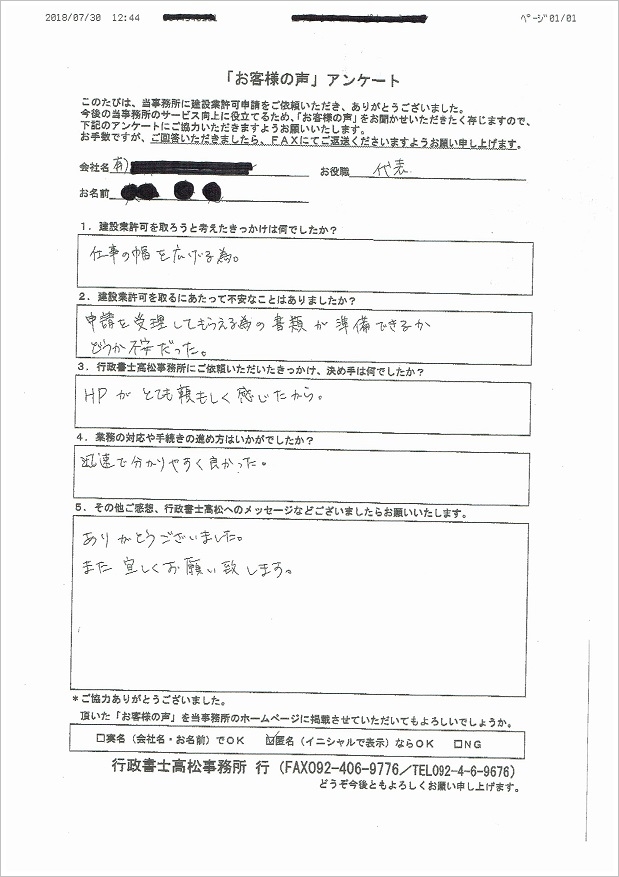 2018/07/30 12:44
ﾍﾟｰｼﾞ01/01
「お客様の声」アンケート
このたびは、当事務所に建設業許可申請をご依頼いただき、ありがとうございました。
今後の当事務所のサービス向上に役立てるため、「お客様の声」をお聞かせいただきたく存じますので、
下記のアンケートにご協力いただきますようお願いいたします。
お手数ですが、ご回答いただきましたら、FAXにてご返送くださいますようお願い申し上げます。
会社名 有) お役職 代表
お名前
1．建設業許可を取ろうと考えたきっかけは何でしたか？
仕事の幅を広げる為。
2．建設業許可を取るにあたって不安なことはありましたか？
申請を受理してもらえる為の書類が準備できるか
どうか不安だった。
3．行政書士高松事務所にご依頼いただいたきっかけ、決め手は何でしたか？
HPがとても頼もしく感じたから。
4．業務の対応や手続きの進め方はいかがでしたか？
迅速で分かりやすく良かった。
5．その他ご感想、行政書士高松へのメッセージなどございましたらお願いいたします。
ありがとうございました。
また宜しくお願い致します。
*ご協力ありがとうございました。
頂いた「お客様の声」を当事務所のホームページに掲載させていただいてもよろしいでしょうか。
□実名（会社名・お名前）でOK ☑匿名（イニシャルで表示）ならOK □NG
行政書士高松事務所 行（FAX092-406-9776／TEL092-4-6-9676）
どうぞ今後ともよろしくお願い申し上げます。